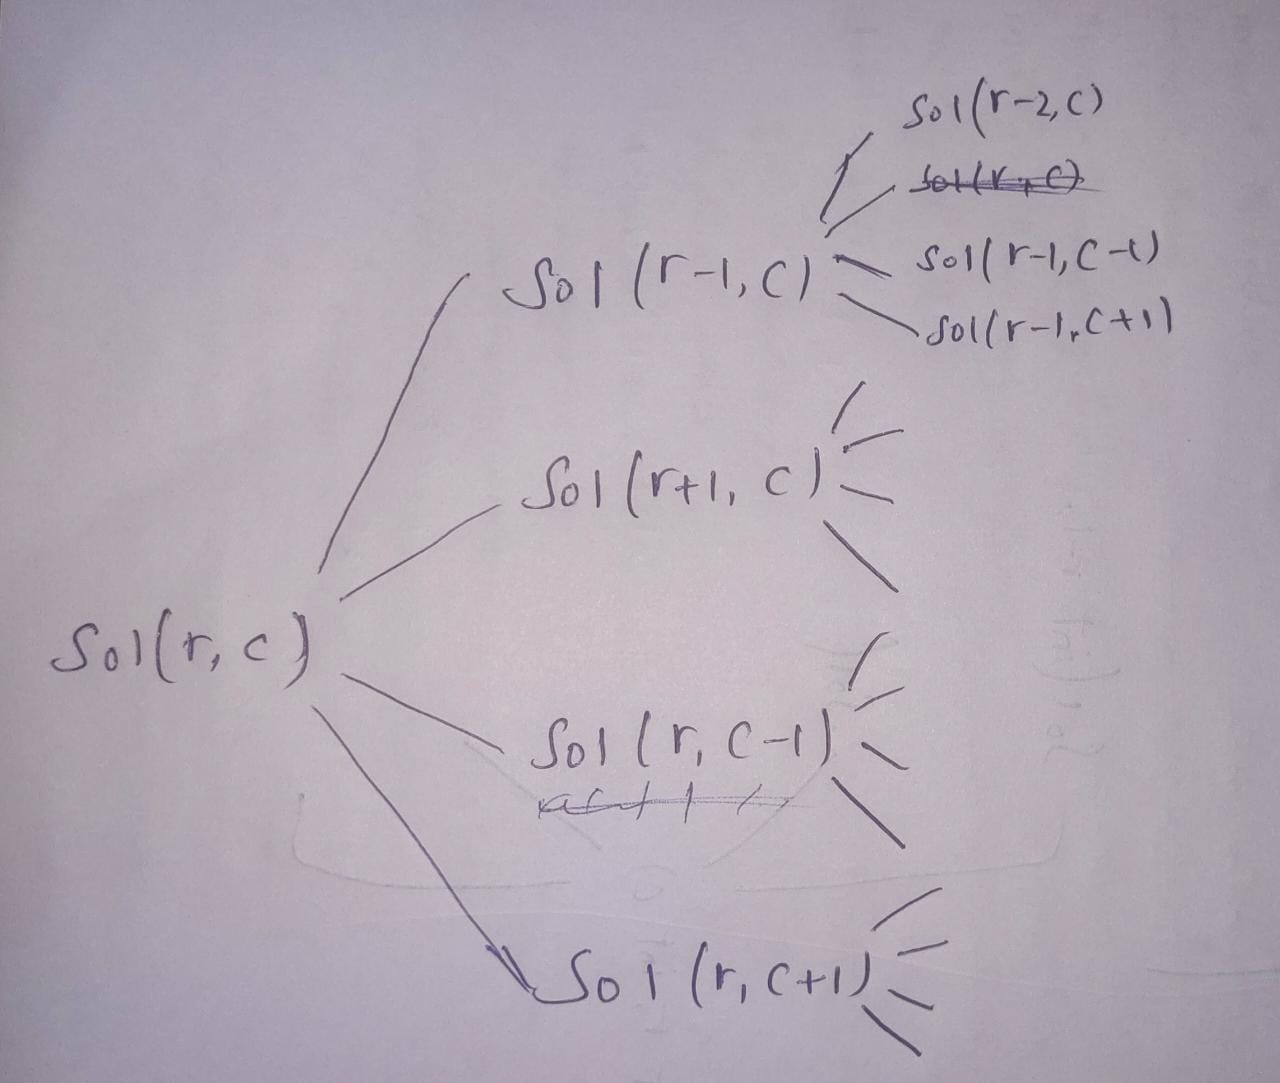 Sol(r-2,c)
Sol(r,c)
Sol(r-1,c-1)
Sol(r-1,c)
Sol(r-1,c+1)
Sol(r+1,c)
Sol(r,c)
Sol(r,c-1)
Sol(r,c+1)